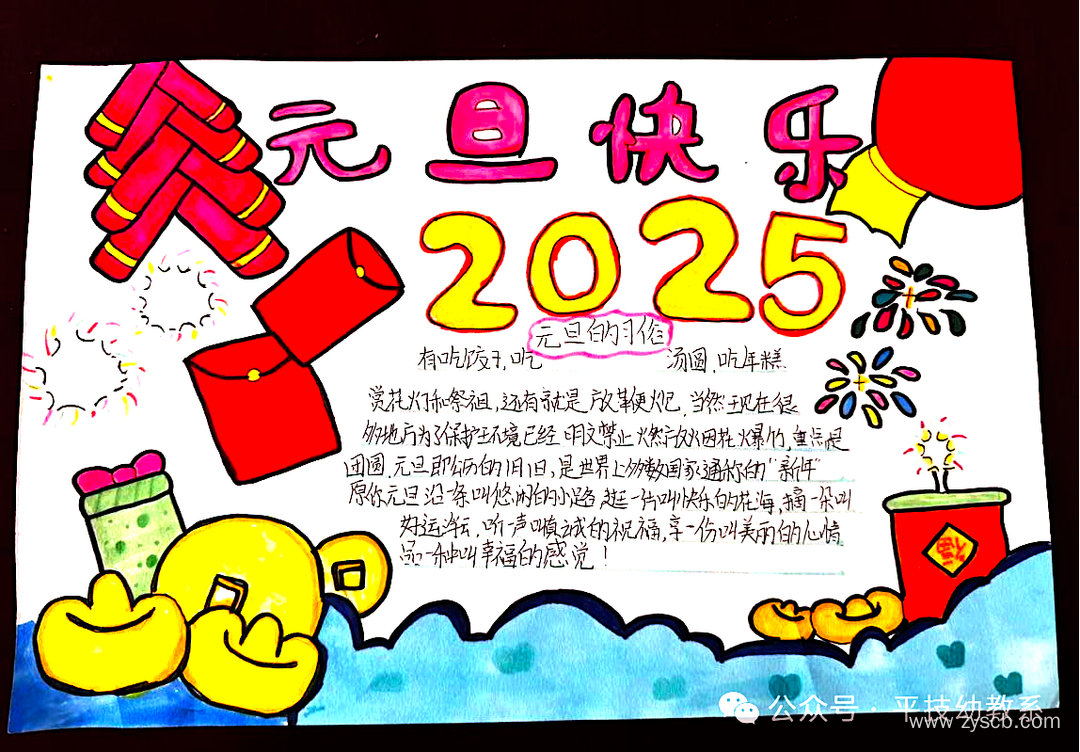 元旦快乐
2025
元旦的习俗
有吃饺子,吃 汤圆,吃年糕
赏花灯和祭祖,还有就是放鞭炮.当然现在很
多地方为了保护环境已经明文禁止燃放烟花爆竹,重点是
团圆.元旦即公历的1月1日,是世界上多数国家通称的"新年"
愿你元旦沿一条叫悠闲的小路,逛一片叫快乐的花海,摘一朵叫
好运浮云,听一声叫真诚的祝福,享一份叫美丽的心情
品一种叫幸福的感觉!
福
公众号·平技幼教系
www.zyscb.com